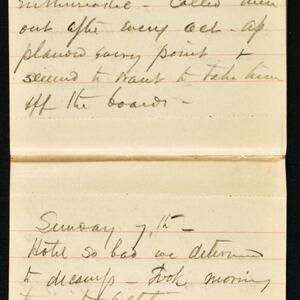 enthusiastic - Called them
out after every act - ap
plauded every point &
seemed to want to take them
off the boards -
Sunday 7th -
Hotel so bad we determined
to decamp - Took morning